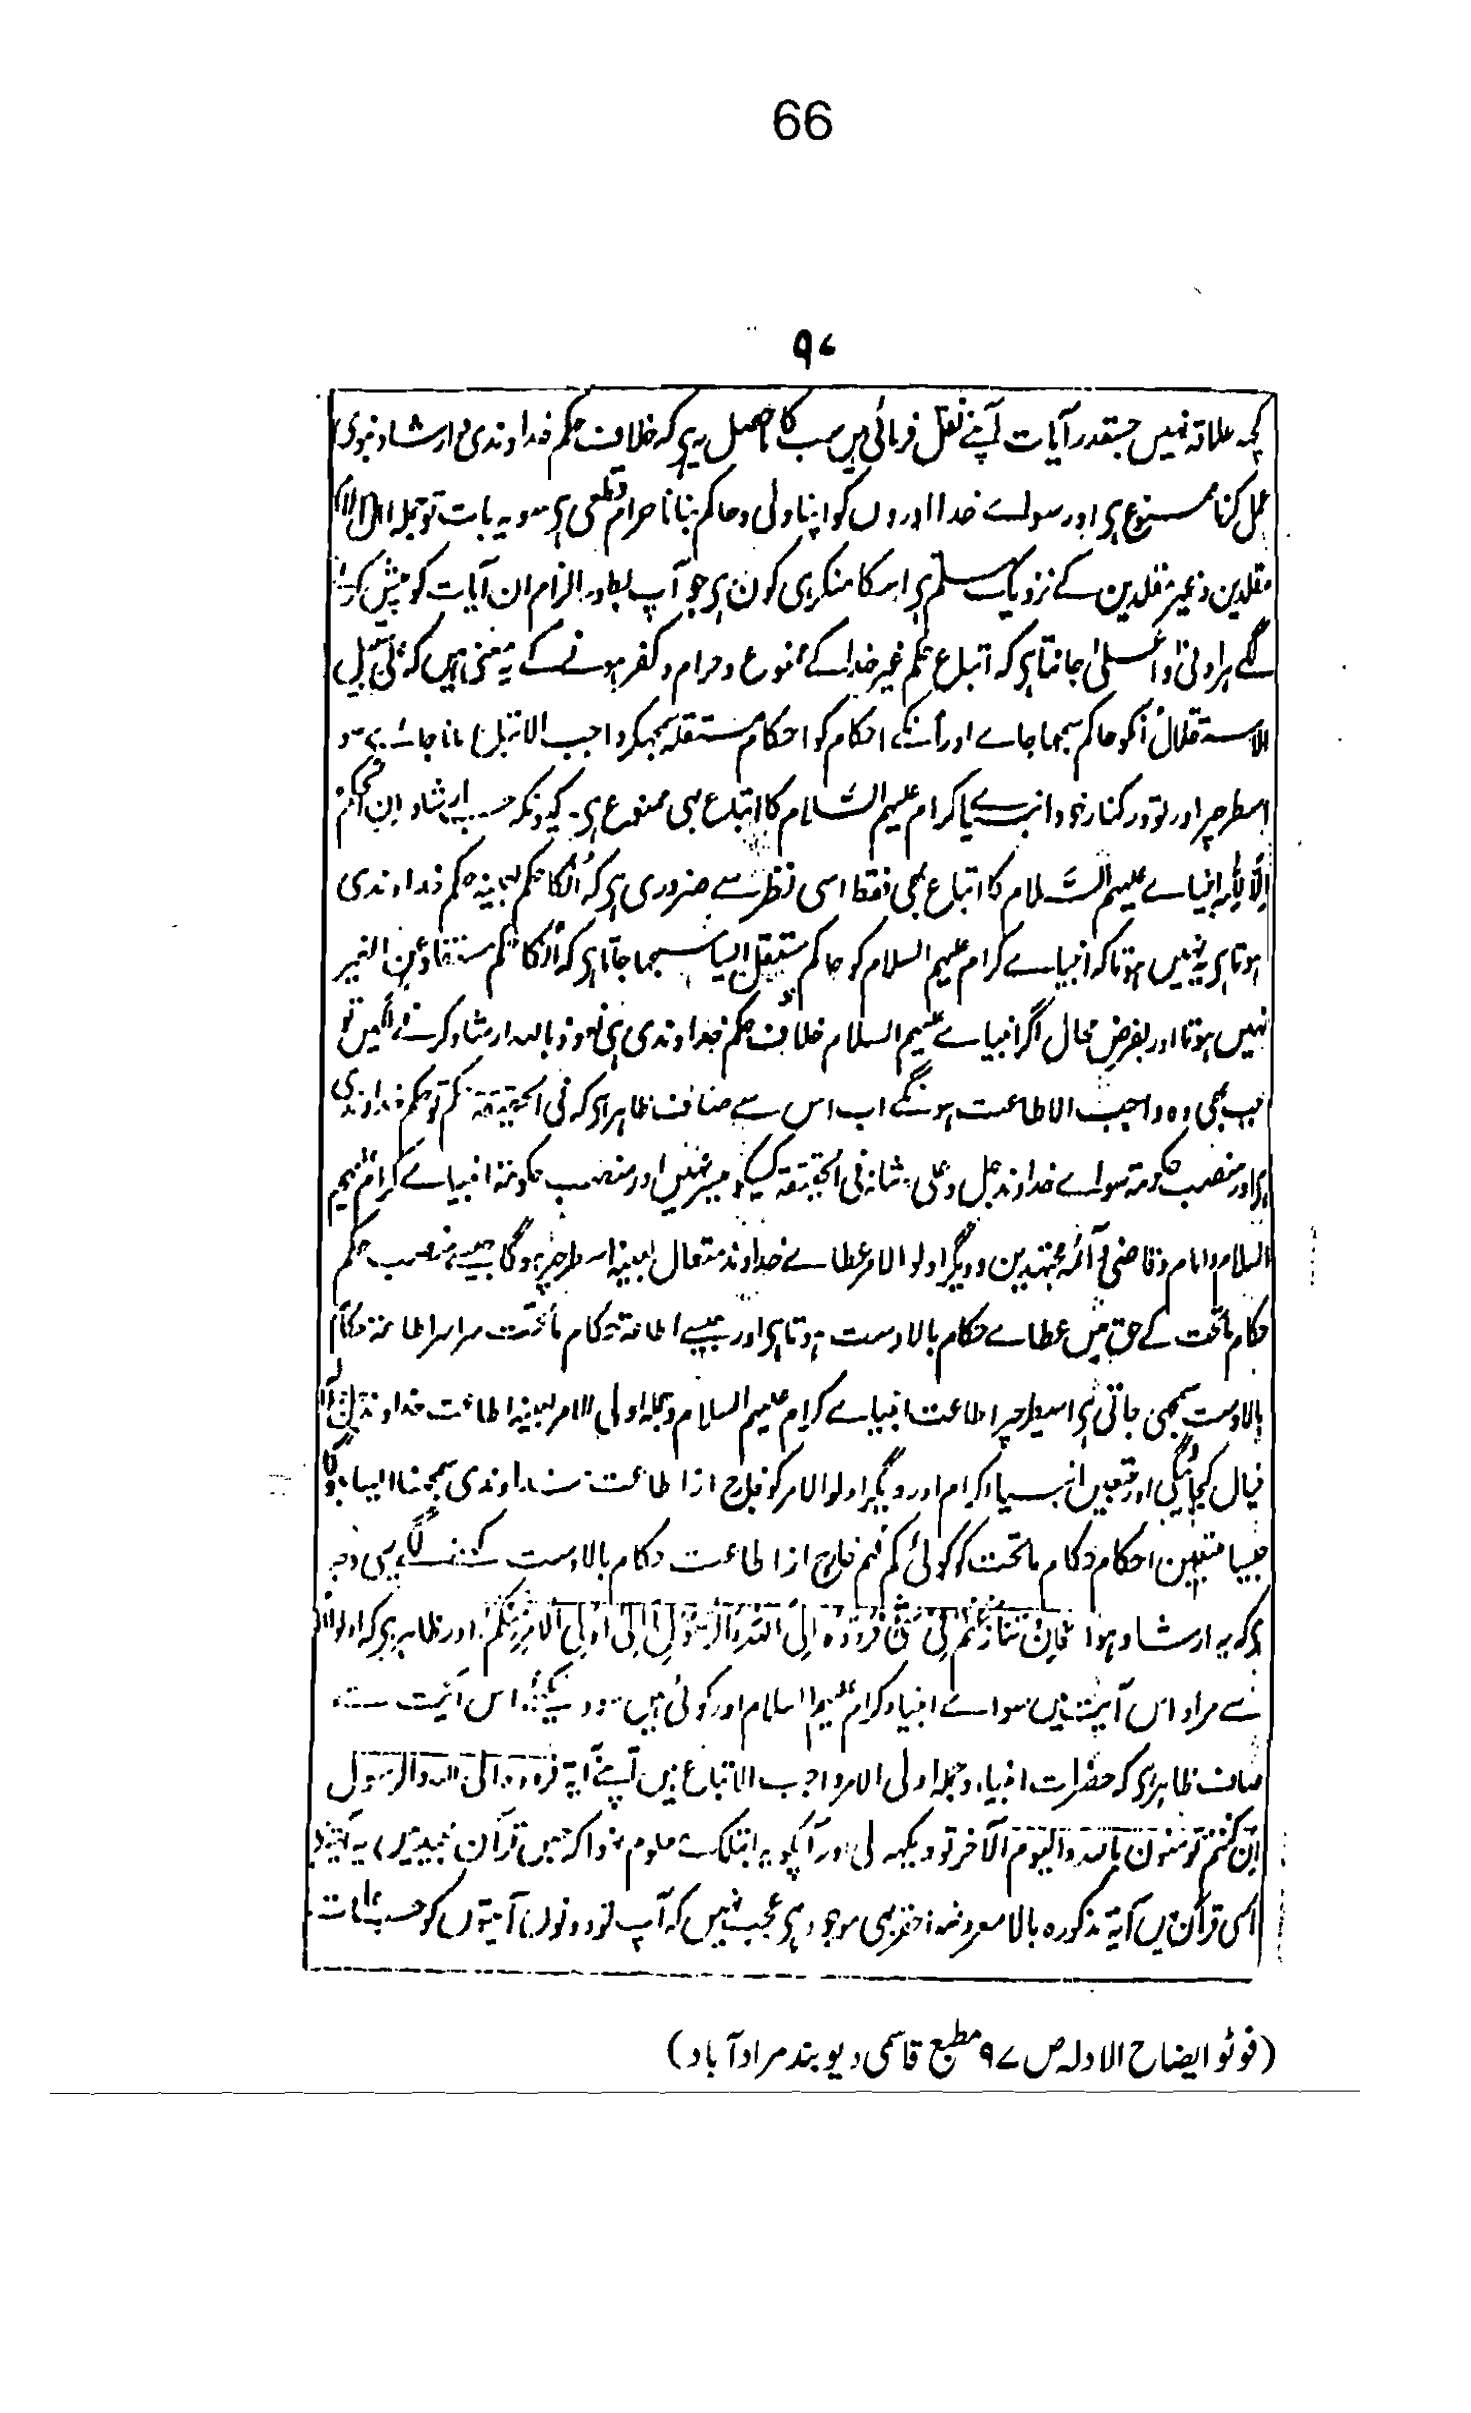 66
۹۷
کچہ علاقہ نہیں جسقدر آیات آپنے نقل فرمائی ہیں سب کا حاصل یہ ہی کہ خلاف حکم خداوندی و ارشاد نبوی
عمل کرنا ممنوع ہی اور سواے خدا اوروں کو اپنا ولی و حاکم بنانا حرام قطعی ہی سو یہ بات تو جملہ اہل اسلام
مقلدین و غیر مقلدین کے نزدیک مسلم ہی اسکا منکر ہی کون ہی جو آپ بطور الزام ان آیات کو پیش کرنے
لگے ہر ادنی و اعلیٰ جانتا ہی کہ اتباع حکم غیر خدا کے ممنوع و حرام و کفر ہونے کے یہ معنی ہیں کہ علی سبیل
الاستقلال انکو حاکم سمجھا جاے اور اُنکے احکام کو احکام مستقلہ سمجہکر واجب الاتباع مانا جاے سو
اسطرحپر اور تو درکنار خود انبیاے کرام علیہم السَّلام کا اتباع بھی ممنوع ہی کیونکہ حسب ارشاد اِنِ الحُکمُ
اِلَّا لِلّٰہِ انبیاے علیہم السَّلام کا اتباع بھی فقط اسی نظر سے ضروری ہی کہ اُنکا حکم بعینہ حکم خداوندی
ہوتا ہی یہ نہیں ہوتا کہ انبیاے کرام علیہم السلام کو حاکم مستقل ایسا سمجھا جاتا ہی کہ اُنکا حکم مستفاد عن الغیر
نہیں ہوتا اور بفرض محال اگر انبیاے علیہم السلام خلاف حکم خداوندی بھی نعوذ باللہ ارشاد کرنے لگیں تو
جب بھی وہ واجب الاطاعت ہونگے اب اس سے صاف ظاہر ہی کہ فی الحقیقۃ حکم تو حکم خداوندی
ہی اور منصب حکومۃ سواے خداوند جل و علی شانہ فی الحقیقۃ کسیکو میسر نہیں اور منصب حکومۃ انبیاے کرام علیہم
السلام و امام و قاضی و آئمہ مجتہدین و دیگر اولو الامر عطاے خداوند متعال بعینہ اسطرحپر ہوگا جیسے منصب حکم
حکام ماتحت کے حق میں عطاے حکام بالادست ہوتا ہی اور جیسے اطاعۃ حکام ماتحت سراسر اطاعۃ حکام
بالادست سمجھی جاتی ہی اسیطرحپر اطاعت انبیاے کرام علیہم السلام و جملہ اولی الامر بعینہ اطاعت خداوند
خیال کیجائیگی اور متبعین انبیاء کرام اور دیگر اولوالامر کو خارج از اطاعت خداوندی سمجہنا ایسا ہوگا
جیسا متبعین احکام حکام ماتحت کو کوئی کم فہم خارج از اطاعت حکام بالادست کہنے لگے یہی وجہ
ہی کہ یہ ارشاد ہوا فَاِنْ تَنَازَعْتُمْ فِی شَیْءٍ فَرُدُّوہُ اِلَی اللّٰہِ وَالرَّسُوْلِ وَاِلٰی اُولِی الْاَمْرِ مِنْکُمْ اور ظاہر ہی کہ اولو الامر
سے مراد اس آیت میں سواے انبیاء کرام علیہم السلام اور کوئی ہیں سو دیکھئے اس آیت سے
صاف ظاہر ہی کہ حضرات انبیاء و جملہ اولی الامر واجب الاتباع ہیں آپنے آیۃ فردوہ الی اللہ والرسول
ان کنتم تومنون باللہ والیوم الآخر تو دیکہہ لی اور آپکو یہ ابتلک معلوم نہوا کہ جس قرآن مجید میں یہ آیۃ
اسی قرآن میں آیۃ مذکورہ بالا معروضہ احقر بھی موجود ہی عجب نہیں کہ آپ تو دونوں آیتوں کو حسب
(فوٹو ایضاح الادلہ ص ۹۷ مطبع قاسمی دیوبند مراد آباد)